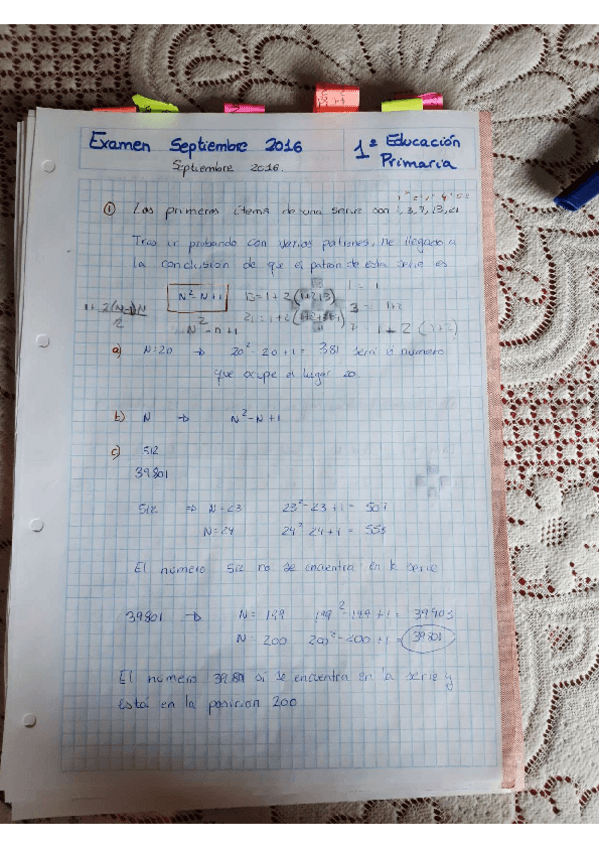 Examen Septiembre 2016
1º Educación Primaria
Septiembre 2016.
① Los primeros ítems de una serie son 1, 3, 7, 13, 21
Tras ir probando con varios patrones, he llegado a
la conclusión de que el patrón de esta serie es
N²-N+1
13 = 1+2(1+2+3)
1 = 1
1+2(N-1)N
2
N²-n+1
3 = 1+2
1+2(1+2)
a) N=20 → 20²-20+1 = 381 será el número
que ocupe el lugar 20.
b) N → N²-N+1
c) 512
39801
512 → N=23 23²-23+1 = 507
N=24 24²-24+1 = 553
El número 512 no se encuentra en la serie
39801 → N= 199 199²-199+1 = 39403
N= 200 200²-200+1 = 39801
El número 39801 si se encuentra en la serie y
está en la posición 200